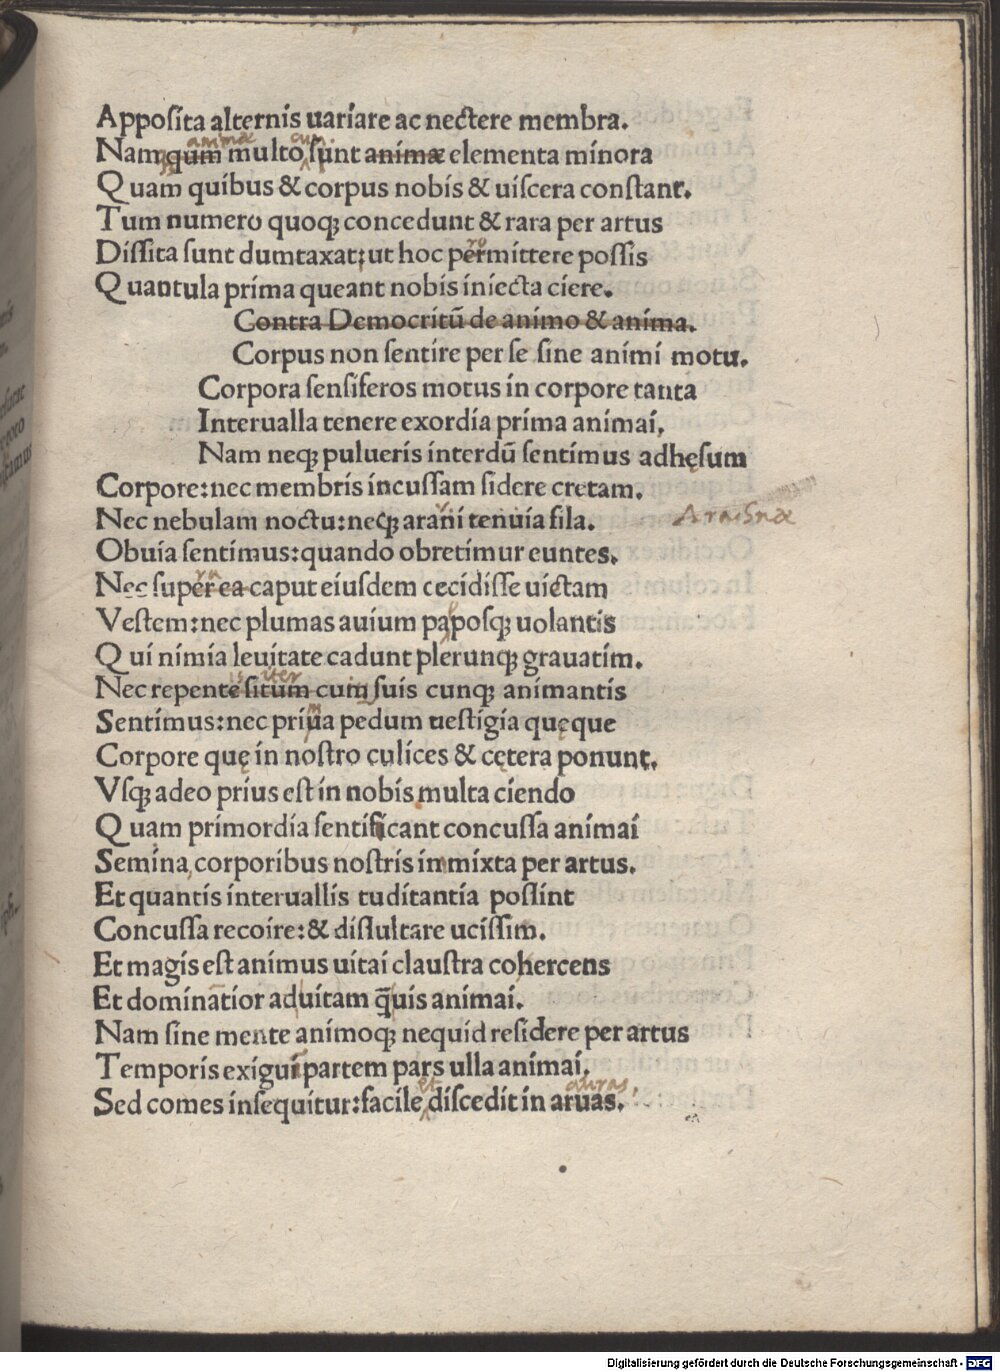 Apposita alternis uariare ac nectere membra.
animæ cum
Nam qum multo sunt animæ elementa minora
Quam quibus & corpus nobis & uiscera constant.
Tum numero quoqꝫ concedunt & rara per artus
Dissita sunt dumtaxat: ut hoc permittere possis
Quantula prima queant nobis iniecta ciere.
Contra Democritū de animo & anima.
Corpus non sentire per se sine animi motu.
Corpora sensiferos motus in corpore tanta
Interualla tenere exordia prima animai,
Nam neqꝫ pulueris interdū sentimus adhęsum
Corpore: nec membris incussam sidere cretam.
Nec nebulam noctu: neqꝫ arani tenuia fila. Arachnæ
Obuia sentimus: quando obretimur euntes.
Nec super ea caput eiusdem cecidisse uictam
Vestem: nec plumas auium paposqꝫ uolantis
Qui nimia leuitate cadunt plerunqꝫ grauatim.
is iter
Nec repente situm cum suis cunqꝫ animantis
Sentimus: nec priua pedum uestigia quęque
Corpore quę in nostro culices & cętera ponunt.
Vsqꝫ adeo prius est in nobis multa ciendo
Quam primordia sentificant concussa animai
Semina corporibus nostris inmixta per artus.
Et quantis interuallis tuditantia possint
Concussa recoire: & dissultare ucissim.
Et magis est animus uitai claustra cohercens
Et dominatior aduitam q̄uis animai.
Nam sine mente animoqꝫ nequid residere per artus
Temporis exigui partem pars ulla animai,
et auras
Sed comes insequitur: facile discedit in aruas.
Digitalisierung gefördert durch die Deutsche Forschungsgemeinschaft - DFG